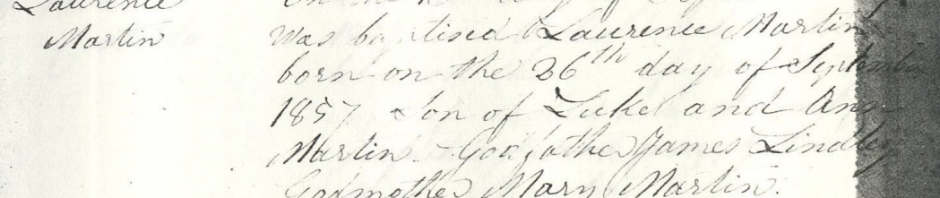 Laurence
Martin
was baptised Laurence Martin
born on the 26th day of September
1857 Son of Luke and Ann
Martin. Godfather James Lindley
Godmother Mary Martin.